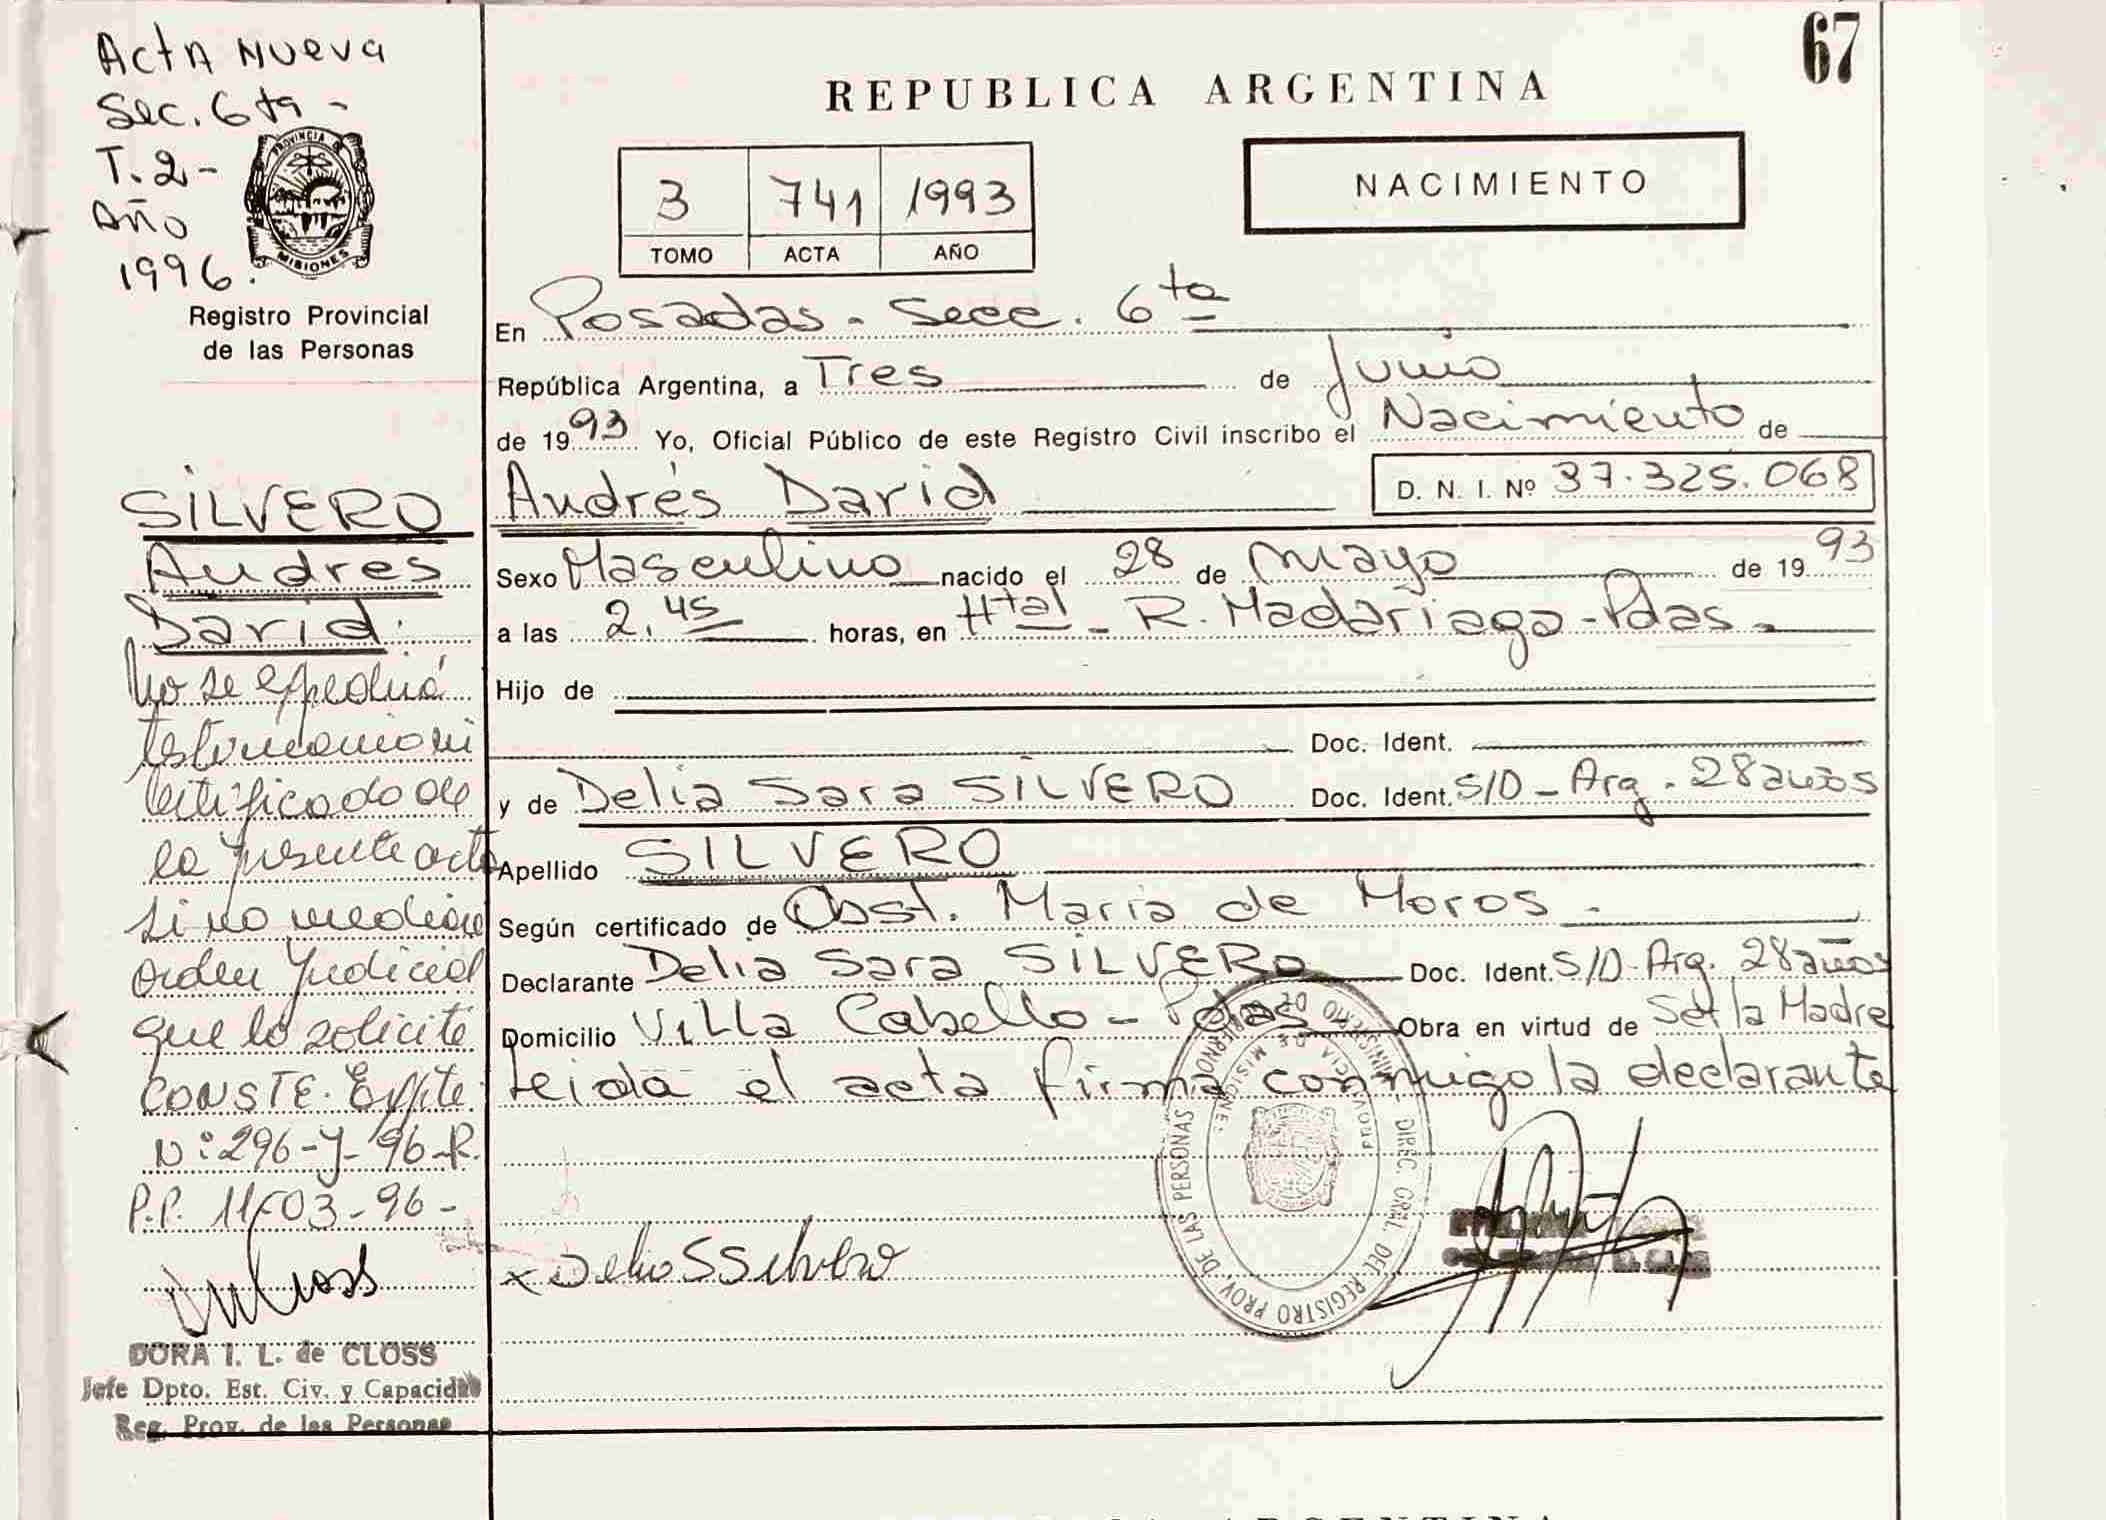 67
Acta Nueva
Sec. 6ta -
T. 2 -
Año
1996.
PROVINCIA DE
MISIONES
Registro Provincial
de las Personas
REPUBLICA ARGENTINA
3 741 1993
TOMO ACTA AÑO
NACIMIENTO
En Posadas - Secc. 6ta
República Argentina, a Tres de Junio
de 1993 Yo, Oficial Público de este Registro Civil inscribo el Nacimiento de
Andrés David D. N. I. Nº 37.325.068
Sexo Masculino nacido el 28 de mayo de 1993
a las 2,45 horas, en Htal - R. Madariaga - Pdas.
Hijo de
Doc. Ident.
y de Delia Sara SILVERO Doc. Ident. S/D - Arg. 28 años
Apellido SILVERO
Según certificado de Obst. Maria de Moros -
Declarante Delia Sara SILVERO Doc. Ident. S/D - Arg. 28 años
Domicilio Villa Cabello - Pdas - Obra en virtud de Ser la Madre
Leida el acta firma conmigo la declarante
SILVERO
Andres
David.
No se expedirá
testimonio ni
certificado de
la presente acta
si no median
orden Judicial
que lo solicite
CONSTE. Expte.
N: 296-Y-96-R.
P.P. 11-03-96 -
DORA I. L. de CLOSS
Jefe Dpto. Est. Civ. y Capacidad
Reg. Prov. de las Personas
x Delia S Silvero
MINISTERIO DE GOBIERNO - DIREC. GRAL. DEL REGISTRO PROV. DE LAS PERSONAS
PROVINCIA DE MISIONES